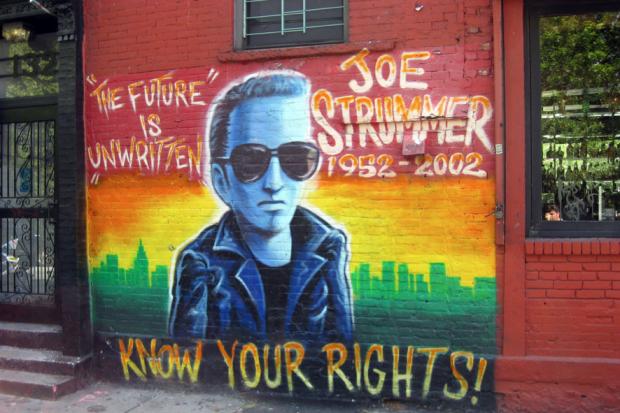 "THE FUTURE"
IS
"UNWRITTEN
JOE
STRUMMER
1952-2002
KNOW YOUR RIGHTS!